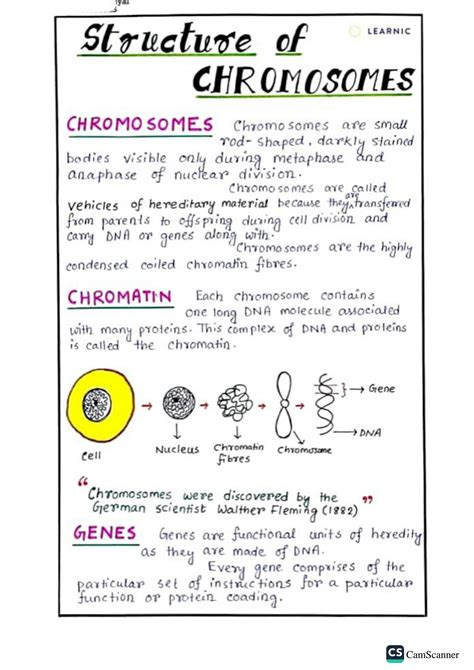 Structure of
LEARNIC
CHROMOSOMES
CHROMOSOMES Chromosomes are small
rod-shaped, darkly stained
bodies visible only during metaphase and
anaphase of nuclear division.
Chromosomes are called
vehicles of hereditary material because they are transferred
from parents to offspring during cell division and
carry DNA or genes along with.
Chromosomes are the highly
condensed coiled chromatin fibres.
CHROMATIN Each chromosome contains
one long DNA molecule associated
with many proteins. This complex of DNA and proteins
is called the chromatin.
Gene
DNA
Cell
Nucleus
Chromatin
fibres
Chromosome
"Chromosomes were discovered by the
German scientist Walther Fleming (1882)"
GENES Genes are functional units of heredity
as they are made of DNA.
Every gene comprises of the
particular set of instructions for a particular
function or protein coading.
CS CamScanner